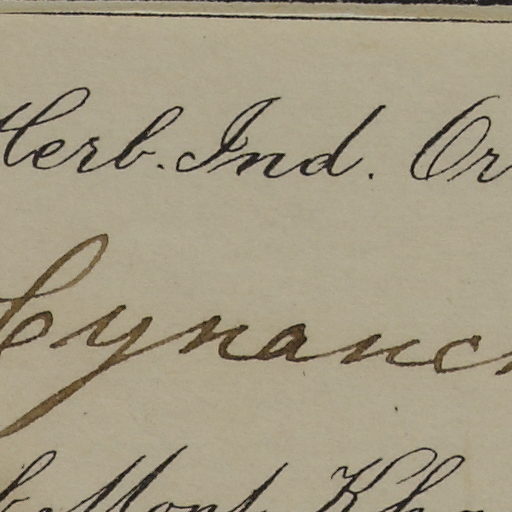 Herb. Ind. Or
Cynanc
Mont. Kha